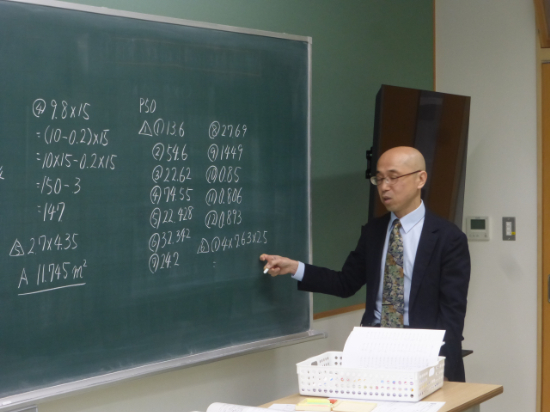 ④ 9.8×15
=(10-0.2)×15
=10×15-0.2×15
=150-3
=147
△5 2.7×4.35
A 11.745m²
P50
△1 ① 13.6
② 54.6
③ 22.62
④ 74.55
⑤ 22.428
⑥ 32.342
⑦ 24.2
⑧ 27.69
⑨ 14.49
⑩ 0.85
⑪ 0.806
⑫ 0.893
① 4×7.63×2.5
=